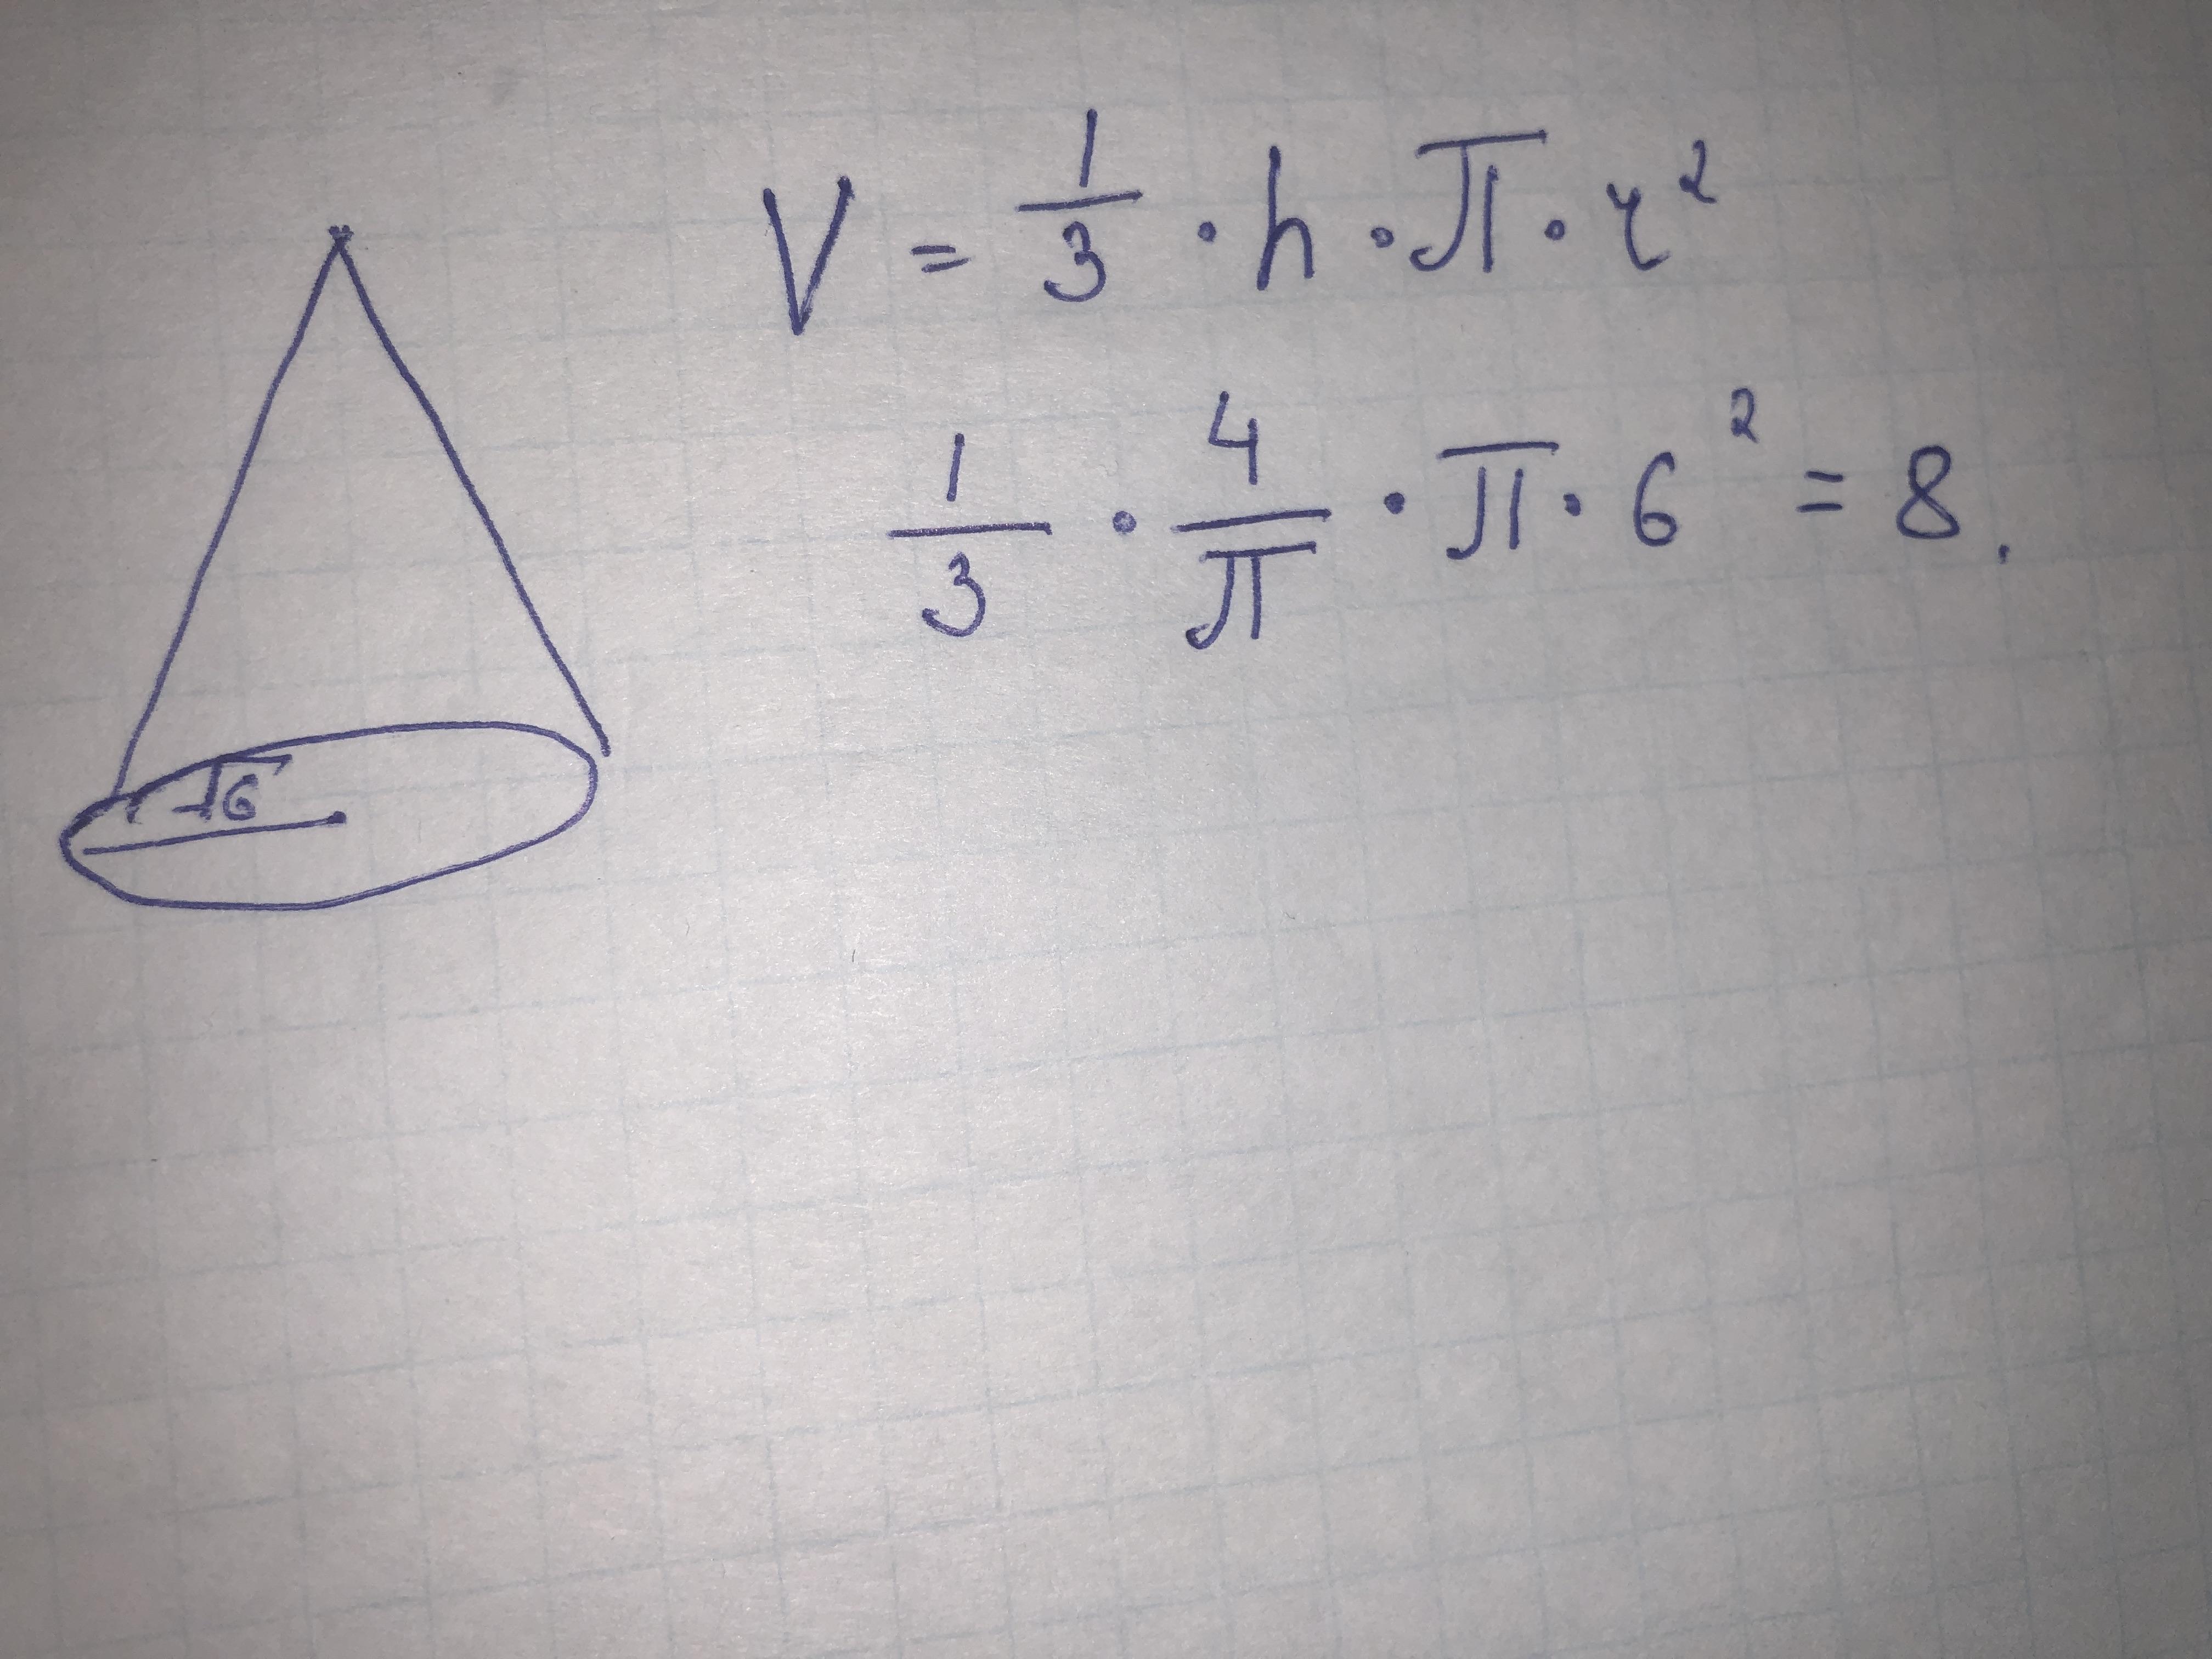 V = 1/3 · h · π · r²
1/3 · 4/π · π · 6² = 8.
√6